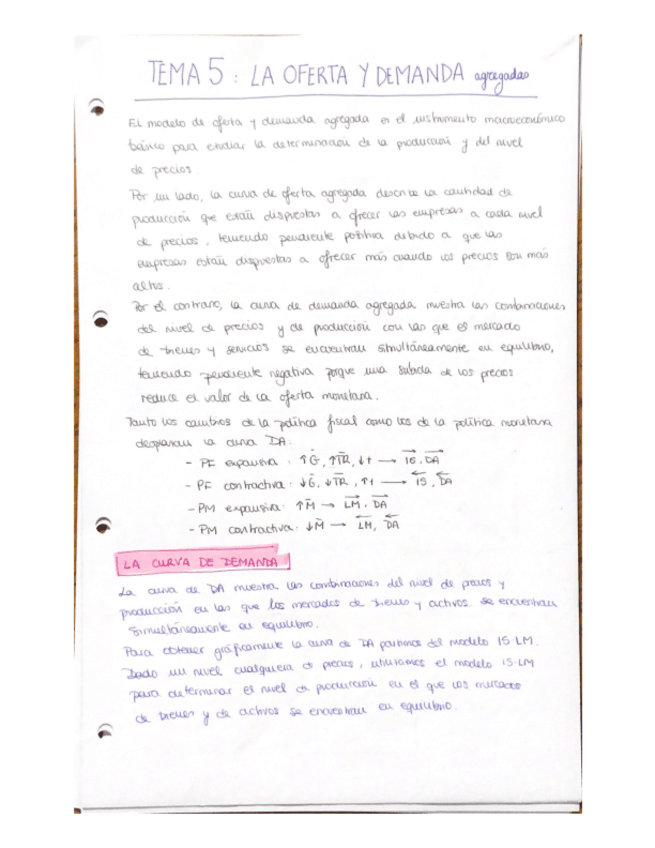 TEMA 5: LA OFERTA Y DEMANDA agregadas
El modelo de oferta y demanda agregada es el instrumento macroeconómico
básico para estudiar la determinación de la producción y del nivel
de precios.
Por un lado, la curva de oferta agregada describe la cantidad de
producción que están dispuestas a ofrecer las empresas a cada nivel
de precios, teniendo pendiente positiva debido a que las
empresas están dispuestas a ofrecer más cuando los precios son más
altos.
Por el contrario, la curva de demanda agregada muestra las combinaciones
del nivel de precios y de producción con las que el mercado
de bienes y servicios se encuentran simultáneamente en equilibrio,
teniendo pendiente negativa porque una subida de los precios
reduce el valor de la oferta monetaria.
Tanto los cambios de la política fiscal como los de la política monetaria
desplazan la curva DA:
- PF expansiva: ↑G̅, ↑T̅R̅, ↓t → I͢S, D͢A
- PF contractiva: ↓G̅, ↓T̅R̅, ↑t → I⃖S, D⃖A
- PM expansiva: ↑M̅ → L͢M, D͢A
- PM contractiva: ↓M̅ → L⃖M, D⃖A
LA CURVA DE DEMANDA
La curva de DA muestra las combinaciones del nivel de precios y
producción en las que los mercados de bienes y activos se encuentran
simultáneamente en equilibrio.
Para obtener gráficamente la curva de DA partimos del modelo IS-LM.
Dado un nivel cualquiera de precios, utilizamos el modelo IS-LM
para determinar el nivel de producción en el que los mercados
de bienes y de activos se encuentran en equilibrio.